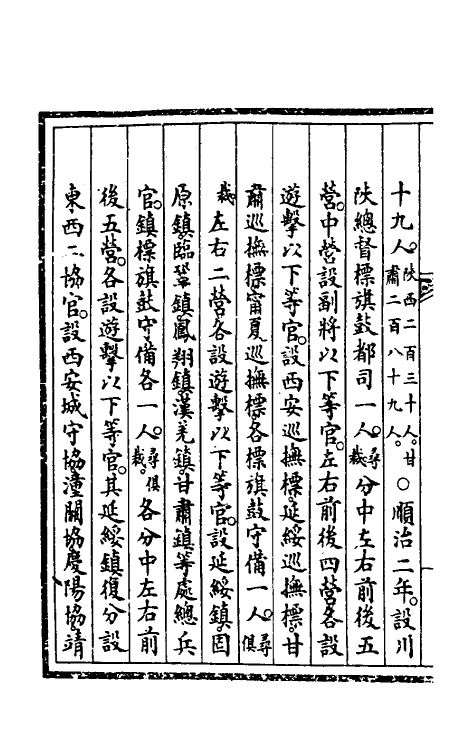 十九人。陜西二百三十人。甘肅二百八十九人。○順治二年。設川
陜總督標旗鼓都司一人。尋裁分中左右前後五
營。中營設副將以下等官。左右前後四營。各設
遊擊以下等官。設西安巡撫標。延綏巡撫標。甘
肅巡撫標。甯夏巡撫標。各標旗鼓守備一人。尋俱
裁左右二營。各設遊擊以下等官。設延綏鎮。固
原鎮。臨鞏鎮。鳳翔鎮。漢羌鎮。甘肅鎮等處總兵
官。鎮標旗鼓守備各一人。尋俱裁。各分中左右前
後五營。各設遊擊以下等官。其延綏鎮。復分設
東西二協官。設西安城守協。潼關協。慶陽協。靖